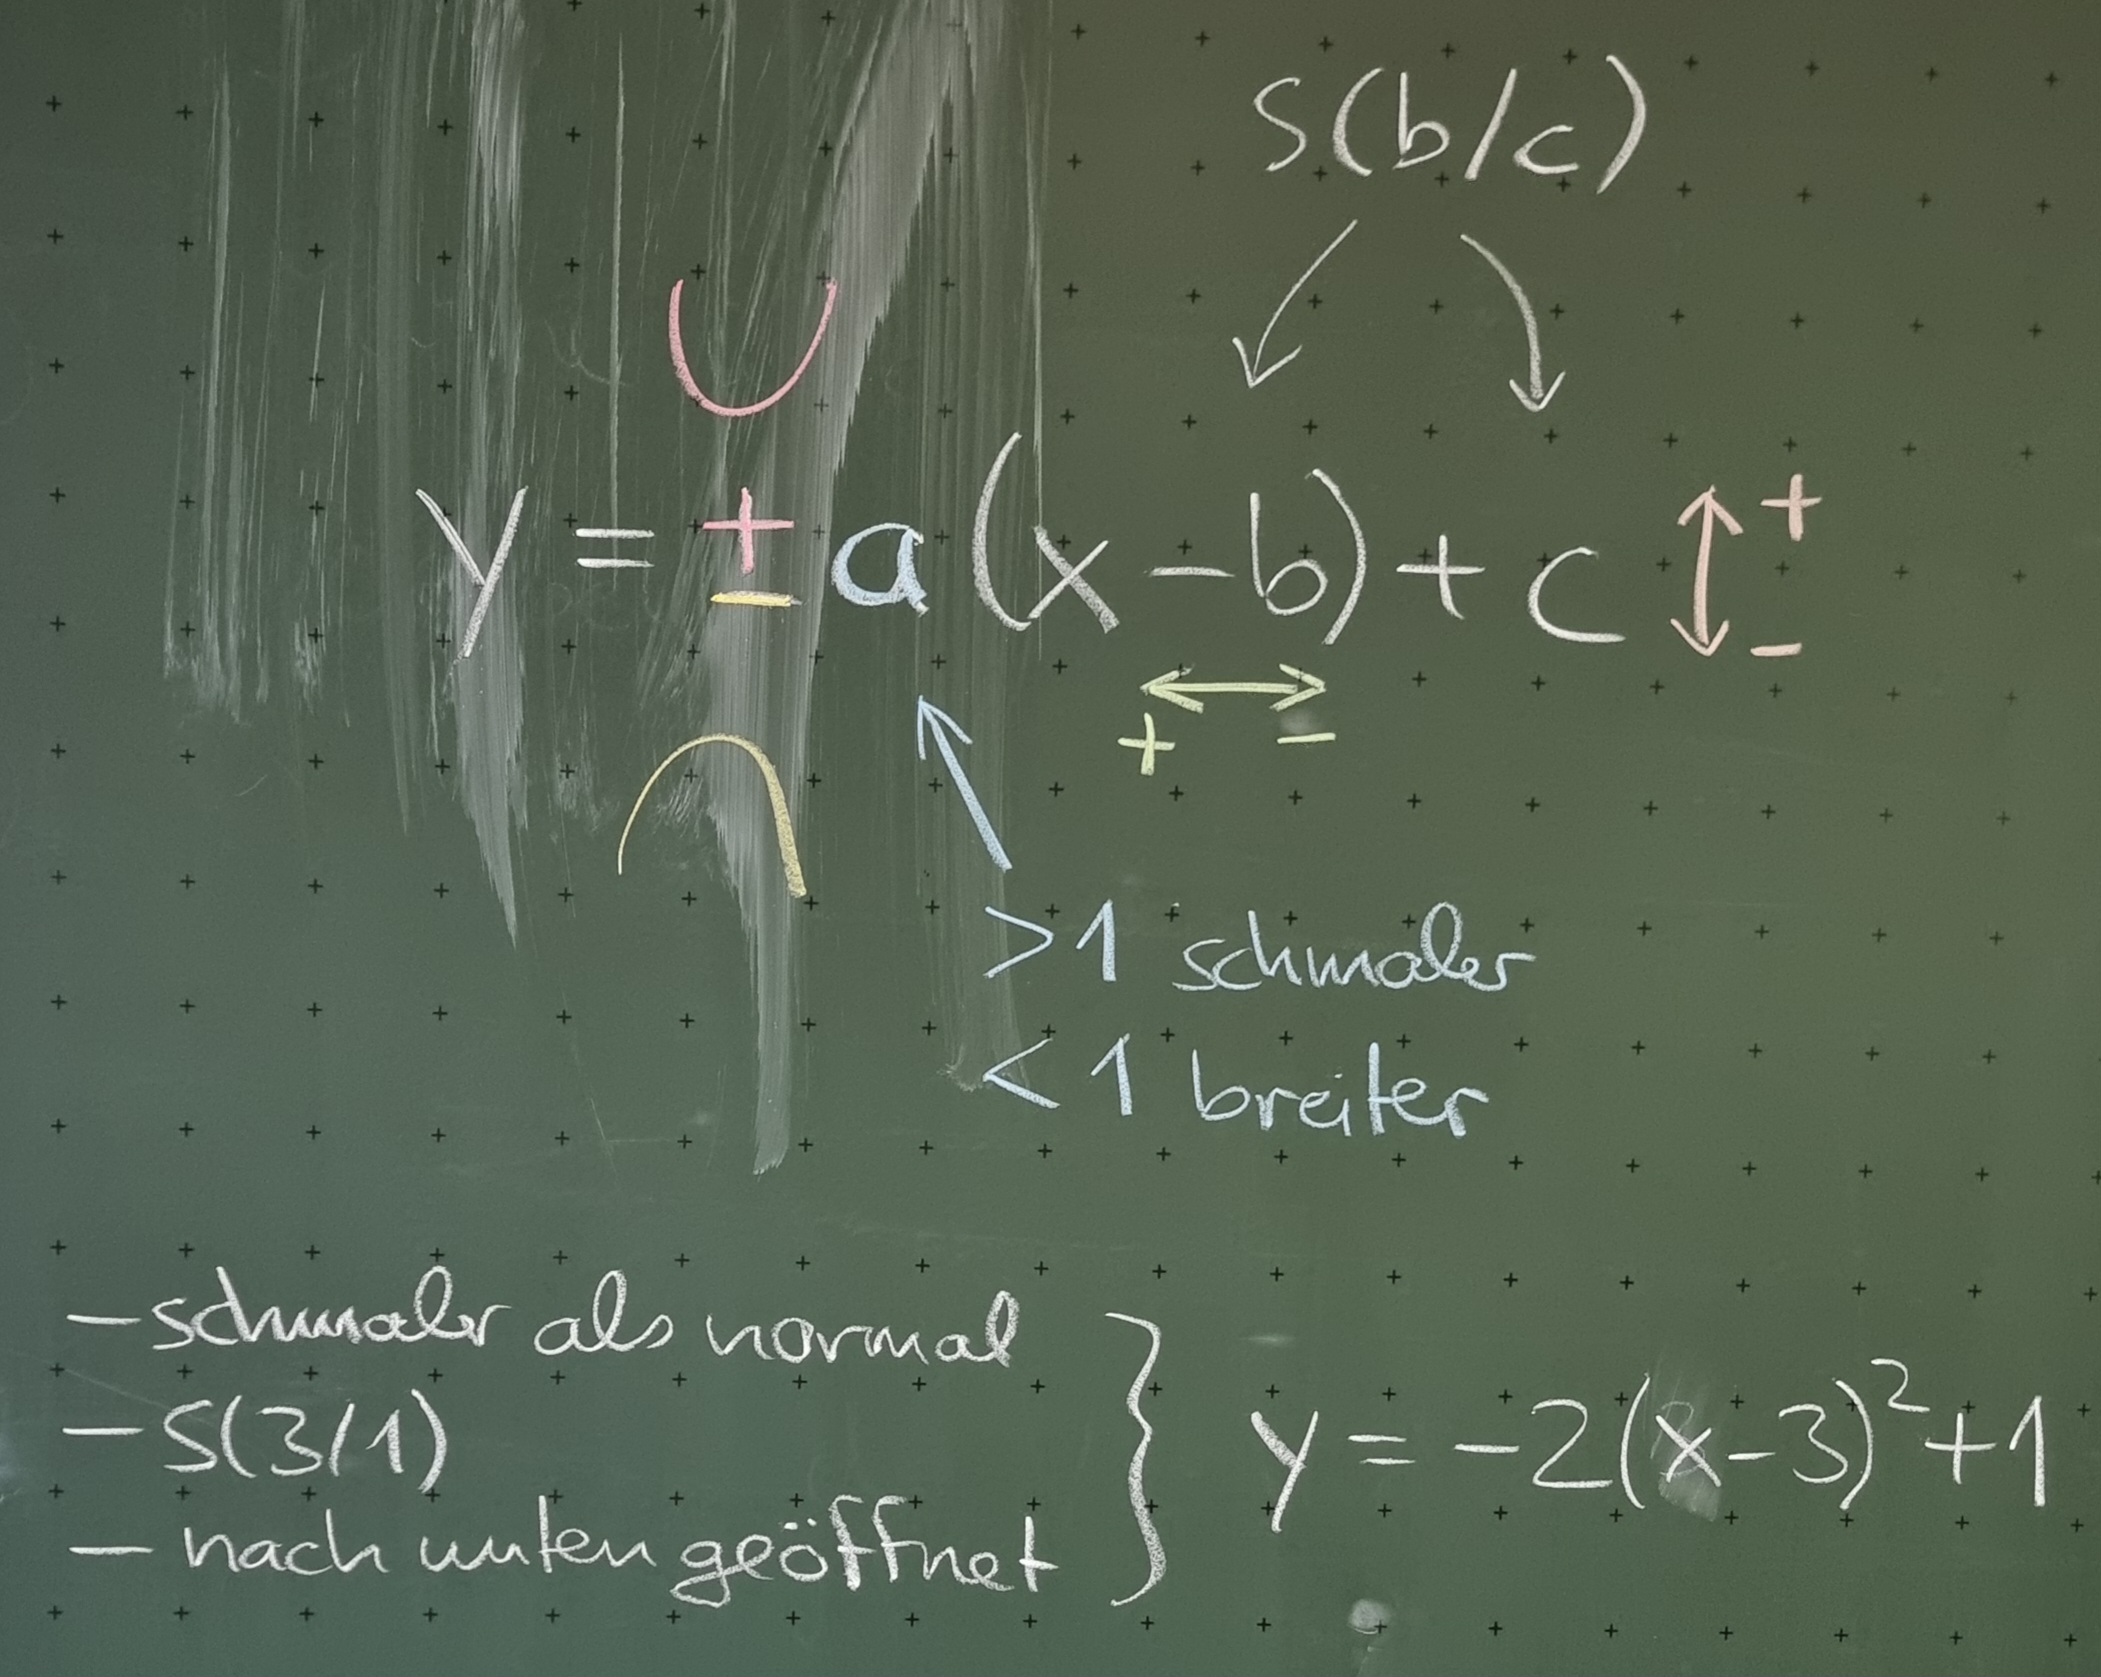 S(b/c)
y = ± a (x - b) + c
+
-
+ -
>1 schmaler
<1 breiter
- schmaler als normal
- S(3/1)
- nach unten geöffnet
y = -2(x-3)²+1